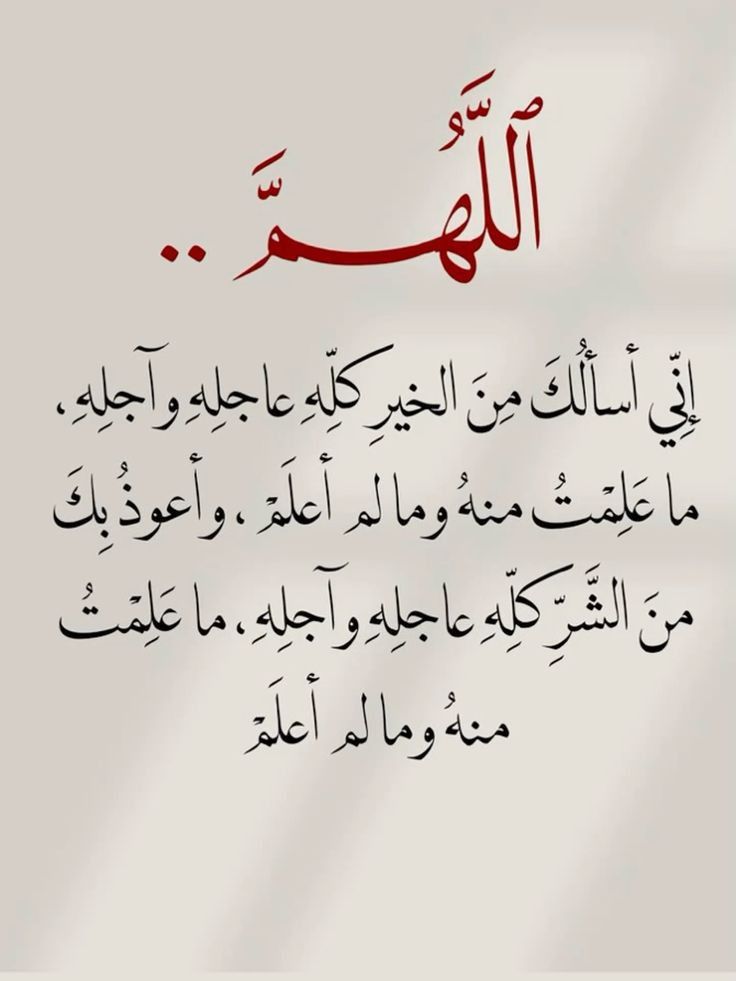 ٱللَّهُمَّ ..
إنِّي أسألُكَ مِنَ الخيرِ كلِّهِ عاجلِهِ وآجلِهِ ،
ما عَلِمْتُ منهُ وما لم أعلَمْ ، وأعوذُ بِكَ
منَ الشَّرِّ كلِّهِ عاجلِهِ وآجلِهِ ، ما عَلِمْتُ
منهُ وما لم أعلَمْ